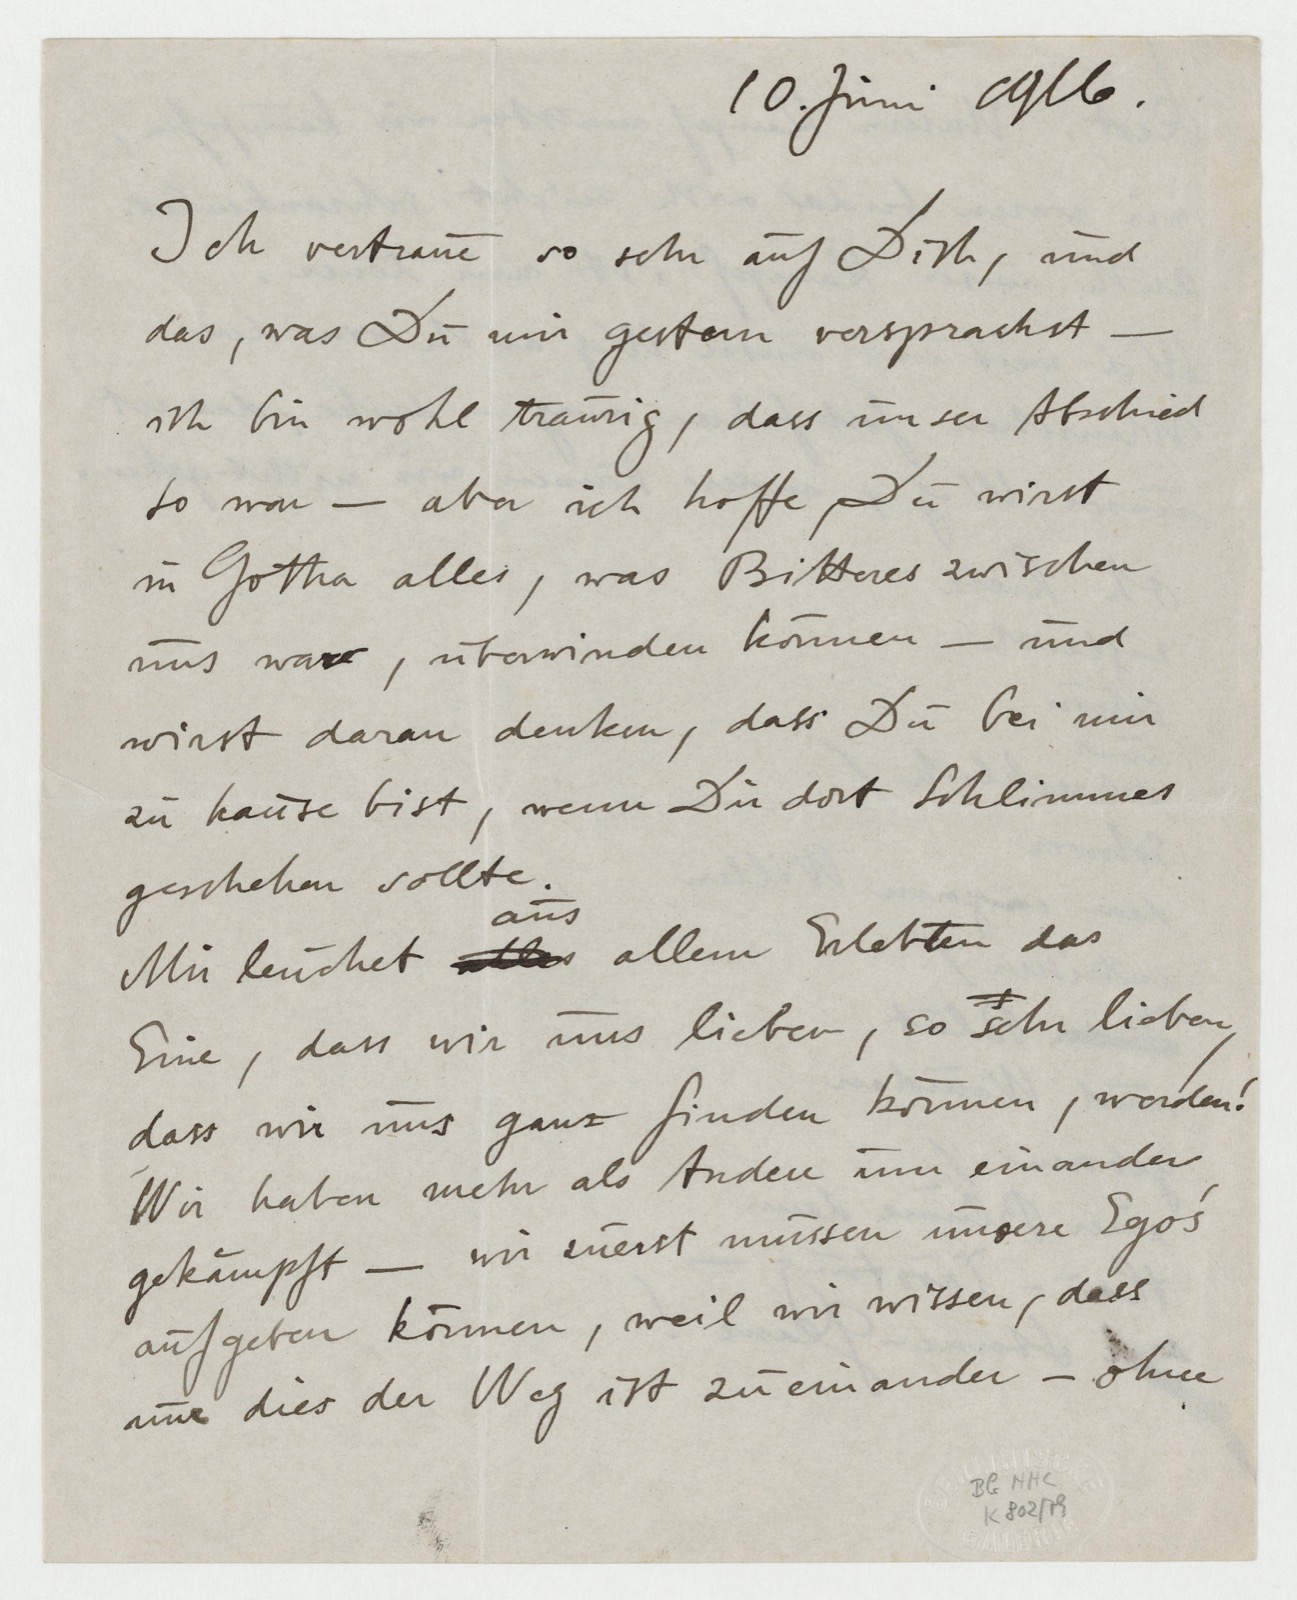 10. Juni 1916.
Ich vertraue so sehr auf Dich, und
das, was Du mir gestern versprachst —
ich bin wohl traurig, dass unser Abschied
so war — aber ich hoffe, Du wirst
in Gotha alles, was Bitteres zwischen
uns war, überwinden können — und
wirst daran denken, dass Du bei mir
zu hause bist, wenn Dir dort Schlimmes
geschehen sollte.
aus
Mir leuchet alles allem Erlebten das
Eine, dass wir uns lieben, so sehr lieben,
dass wir uns ganz finden können, werden!
Wir haben mehr als Andere um einander
gekämpft — wir zuerst müssen unsere Ego's
aufgeben können, weil wir wissen, dass
nur dies der Weg ist zueinander — ohne
BG HHC
K 802/79